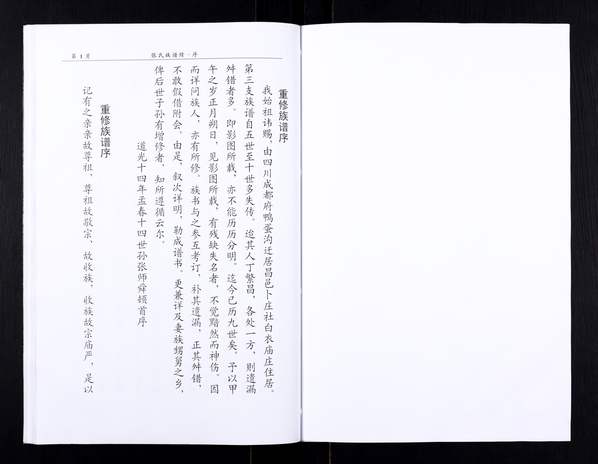 第 1 页
张氏族谱续·序
重修族谱序
我始祖讳赐，由四川成都府鸭蛋沟迁居昌邑卜庄社白衣庙庄住居。
第三支族谱自五世至十世多失传。迨其人丁繁昌，各处一方，则遗漏
舛错者多。即影图所载，亦不能历历分明。迄今已历九世矣。予以甲
午之岁正月朔日，见影图所载，有残缺失名者，不觉黯然而神伤。因
而详问族人，亦有所修。族书与之参互考订，补其遗漏，正其舛错，
不敢假借附会。由是，叙次详明，勒成谱书。更兼详及妻族甥舅之乡，
俾后世子孙有增修者，知所遵循云尔。
道光十四年孟春十四世孙张师舜顿首序
重修族谱序
记有之亲亲故尊祖，尊祖故敬宗，故收族，收族故宗庙严，是以